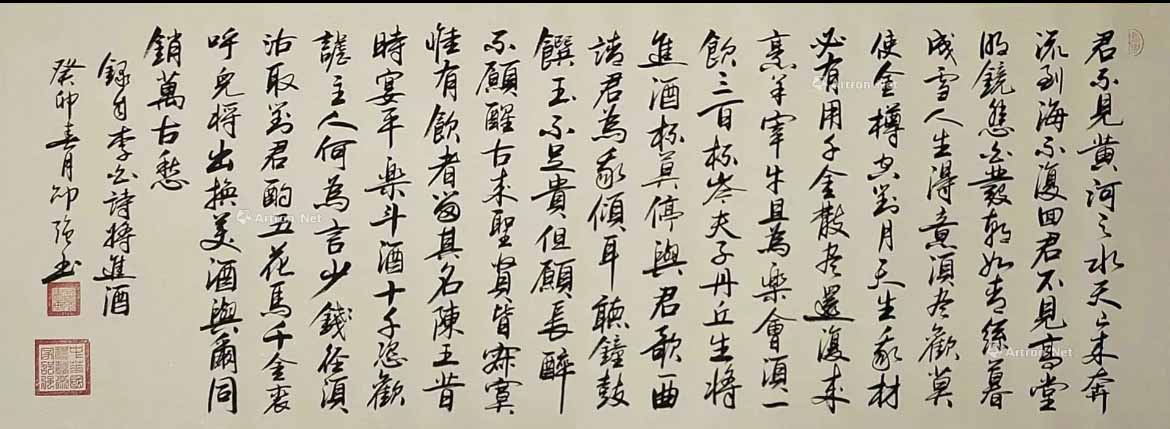 君不見黄河之水天上来奔
流到海不復回君不見高堂
明鏡悲白髮朝如青絲暮
成雪人生得意須盡歡莫
使金樽空對月天生我材
必有用千金散盡還復来
烹羊宰牛且為樂會須一
飲三百杯岑夫子丹丘生將
進酒杯莫停與君歌一曲
請君為我傾耳聽鐘鼓
饌玉不足貴但願長醉
不願醒古来聖賢皆寂寞
惟有飲者留其名陳王昔
時宴平樂斗酒十千恣歡
謔主人何為言少錢徑須
沽取對君酌五花馬千金裘
呼兒將出換美酒與爾同
銷萬古愁
録自李白詩將進酒
癸卯春月邵強书
Artron.Net
Artron.Net
Artron.Net
Artron.Net